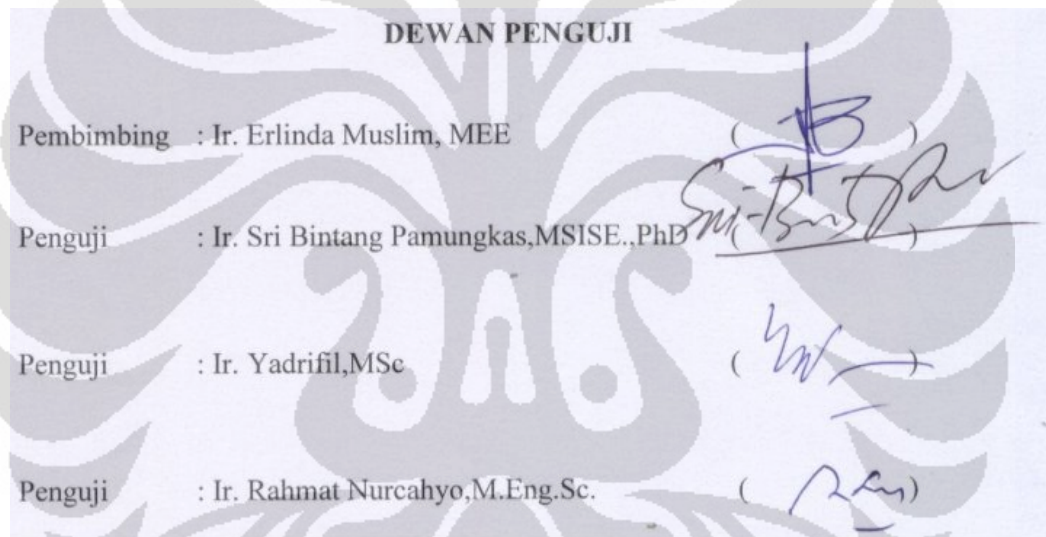 DEWAN PENGUJI
Pembimbing : Ir. Erlinda Muslim, MEE ( )
Penguji : Ir. Sri Bintang Pamungkas,MSISE.,PhD ( )
Penguji : Ir. Yadrifil,MSc ( )
Penguji : Ir. Rahmat Nurcahyo,M.Eng.Sc. ( )